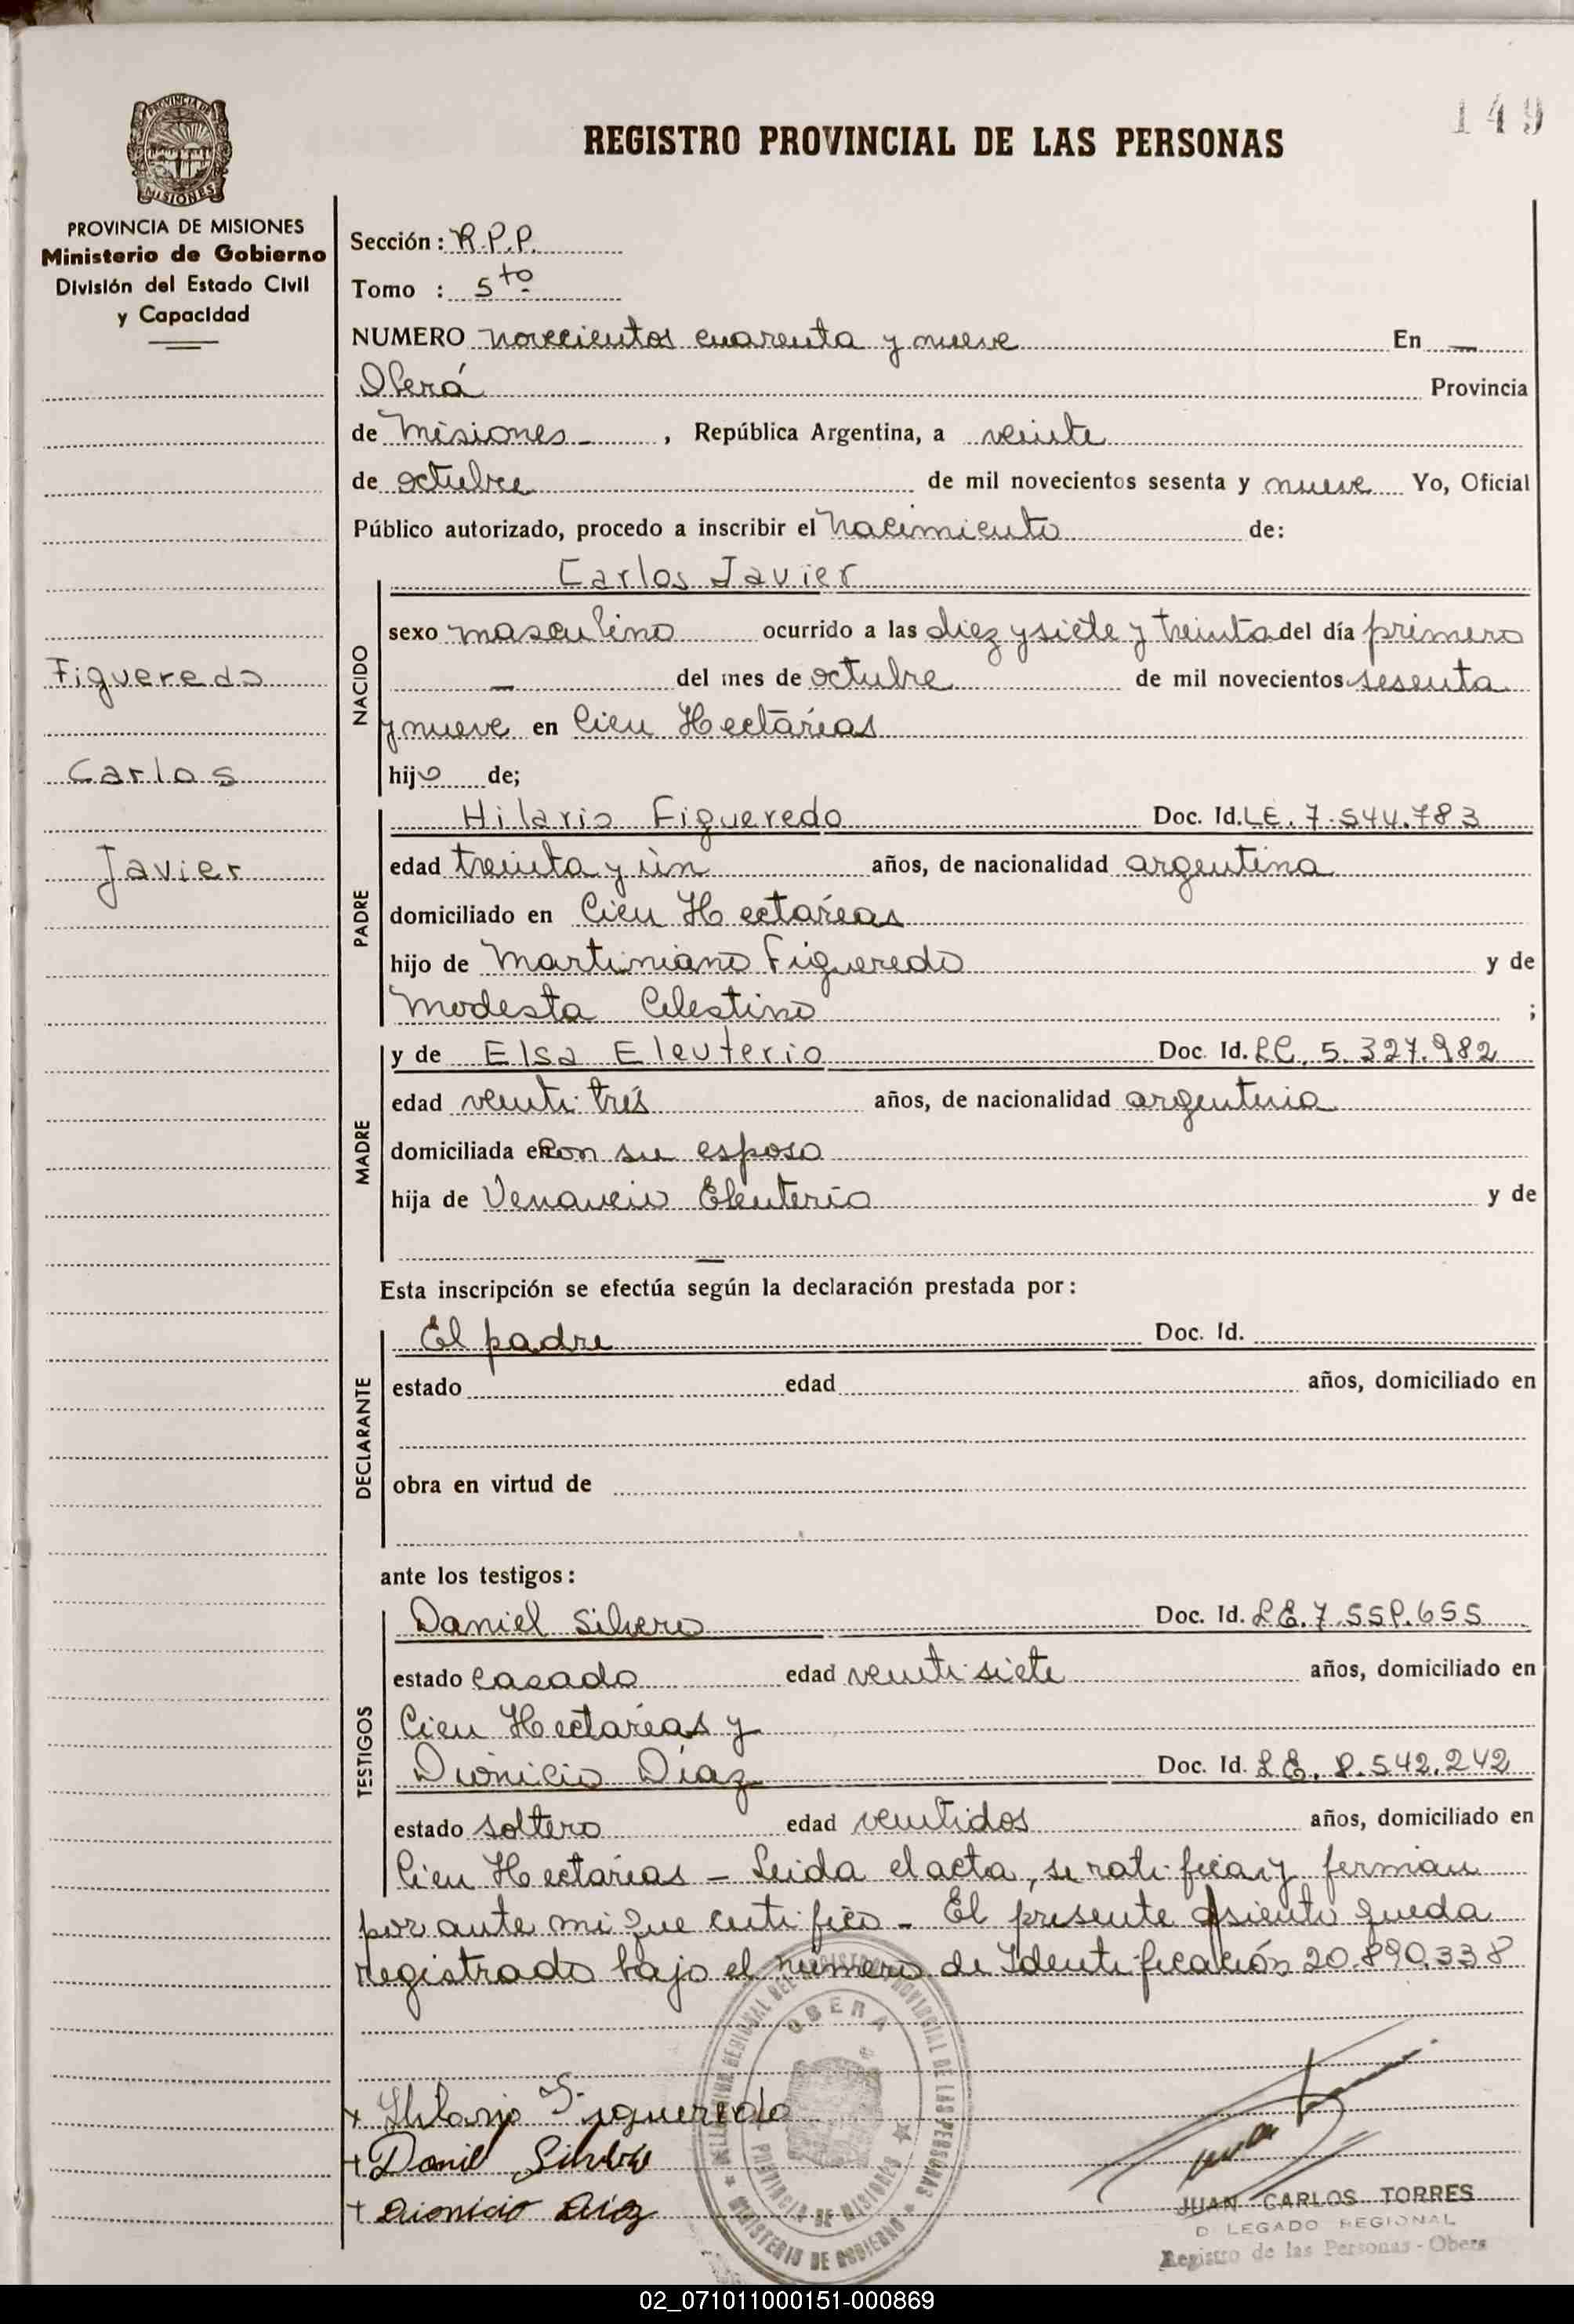 149
REGISTRO PROVINCIAL DE LAS PERSONAS
PROVINCIA DE MISIONES
PROVINCIA DE MISIONES
Ministerio de Gobierno
División del Estado Civil
y Capacidad
Figueredo
Carlos
Javier
Sección : R.P.P.
Tomo : 5to
NUMERO novecientos cuarenta y nueve En —
Oberá Provincia
de Misiones - , República Argentina, a veinte
de octubre de mil novecientos sesenta y nueve Yo, Oficial
Público autorizado, procedo a inscribir el nacimiento de:
NACIDO
Carlos Javier
sexo masculino ocurrido a las diez y siete y treinta del día primero
— del mes de octubre de mil novecientos sesenta
y nueve en Cien Hectáreas
hijo de;
PADRE
Hilario Figueredo Doc. Id. LE. 7.544.783
edad treinta y ún años, de nacionalidad argentina
domiciliado en Cien Hectáreas
hijo de Martiniano Figueredo y de
Modesta Celestino ;
MADRE
y de Elsa Eleuterio Doc. Id. LC. 5.327.982
edad veinti trés años, de nacionalidad argentina
domiciliada en con su esposo
hija de Venancio Eleuterio y de
—
Esta inscripción se efectúa según la declaración prestada por :
DECLARANTE
El padre Doc. Id.
estado edad años, domiciliado en
obra en virtud de
ante los testigos :
TESTIGOS
Daniel Silvero Doc. Id. LE. 7.558.655
estado casado edad veinti siete años, domiciliado en
Cien Hectáreas y
Dionicio Díaz Doc. Id. LE. 8.542.242
estado soltero edad veintidos años, domiciliado en
Cien Hectáreas - Leida el acta, se ratifica y firman
por ante mi que certifico - El presente asiento queda
registrado bajo el número de Identificación 20.890.338
DELEGACION REGIONAL DEL REGISTRO PROVINCIAL DE LAS PERSONAS
OBERA
PROVINCIA DE MISIONES
MINISTERIO DE GOBIERNO
+ Hilario Figueredo
+ Daniel
+ Dionicio Diaz
JUAN CARLOS TORRES
D LEGADO REGIONAL
Registro de las Personas - Obera
02_071011000151-000869